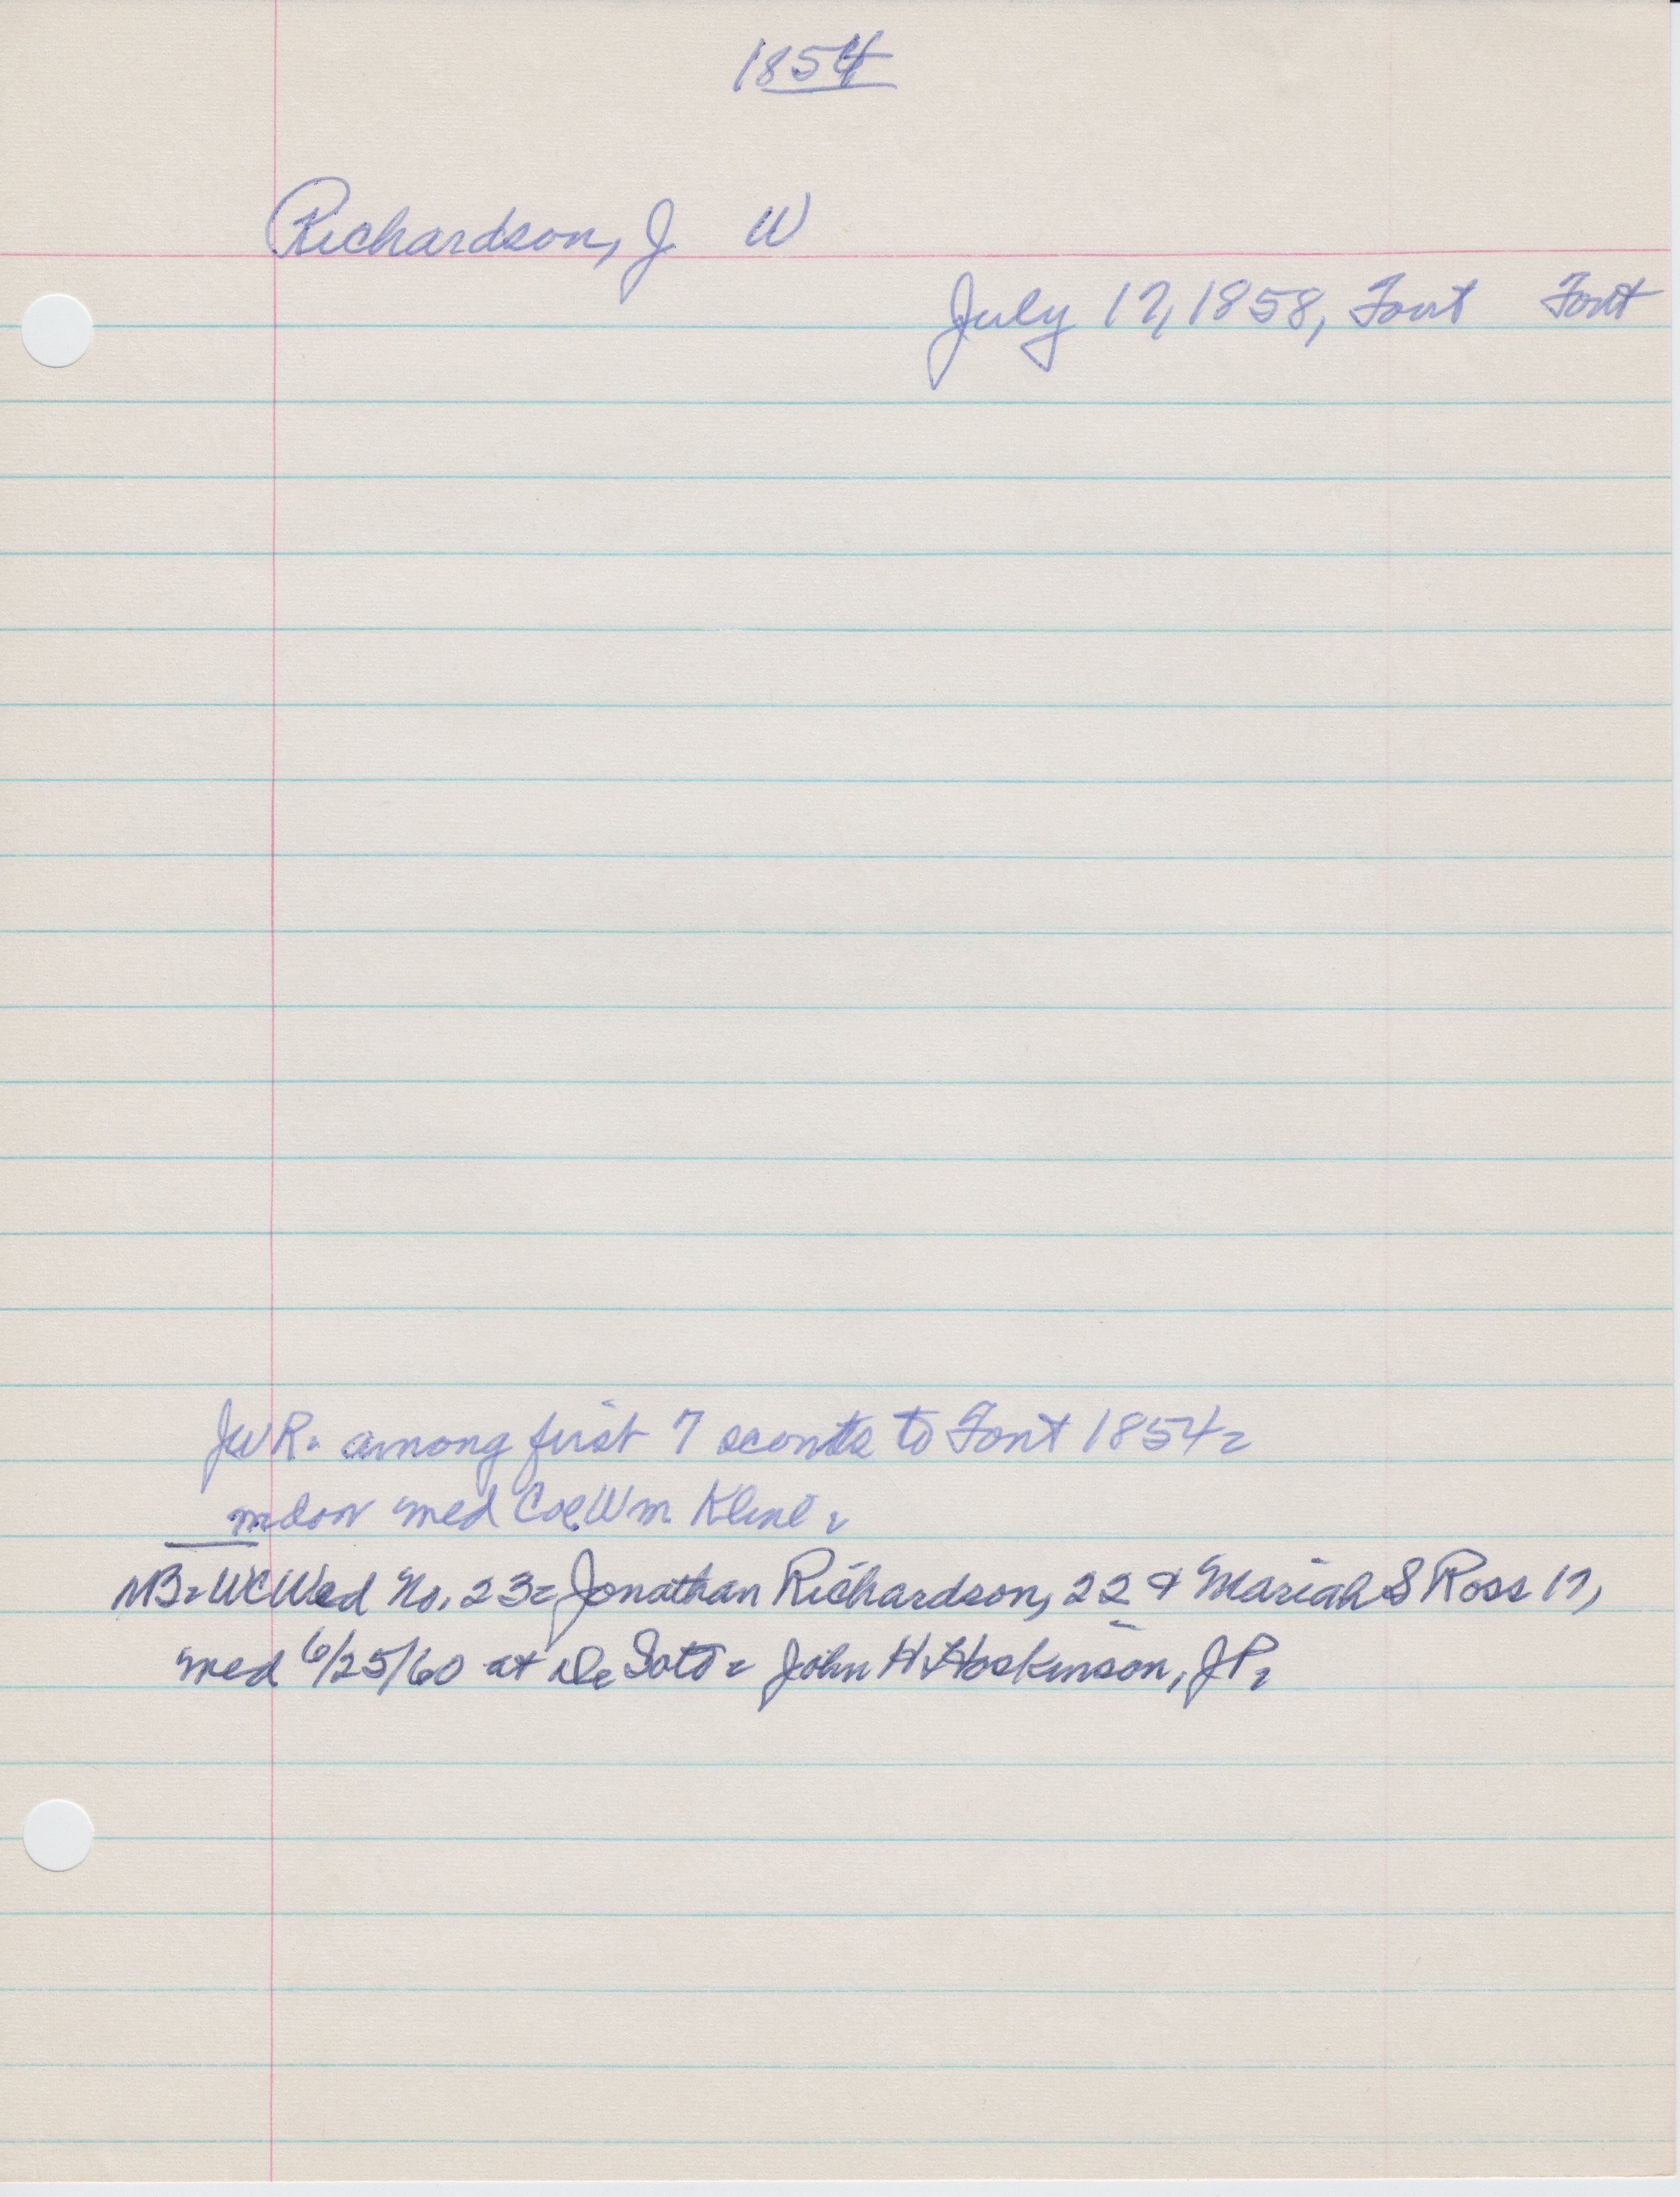 1854
Richardson, J. W
July 17, 1858, Font Font
JWR. among first 7 scouts to Font 1854=
med Col Wm Kline.
MB=WCWed No. 23=Jonathan Richardson, 22 & Mariah S Ross 17,
med 6/25/60 at De Soto= John H Hoskinson, JP.